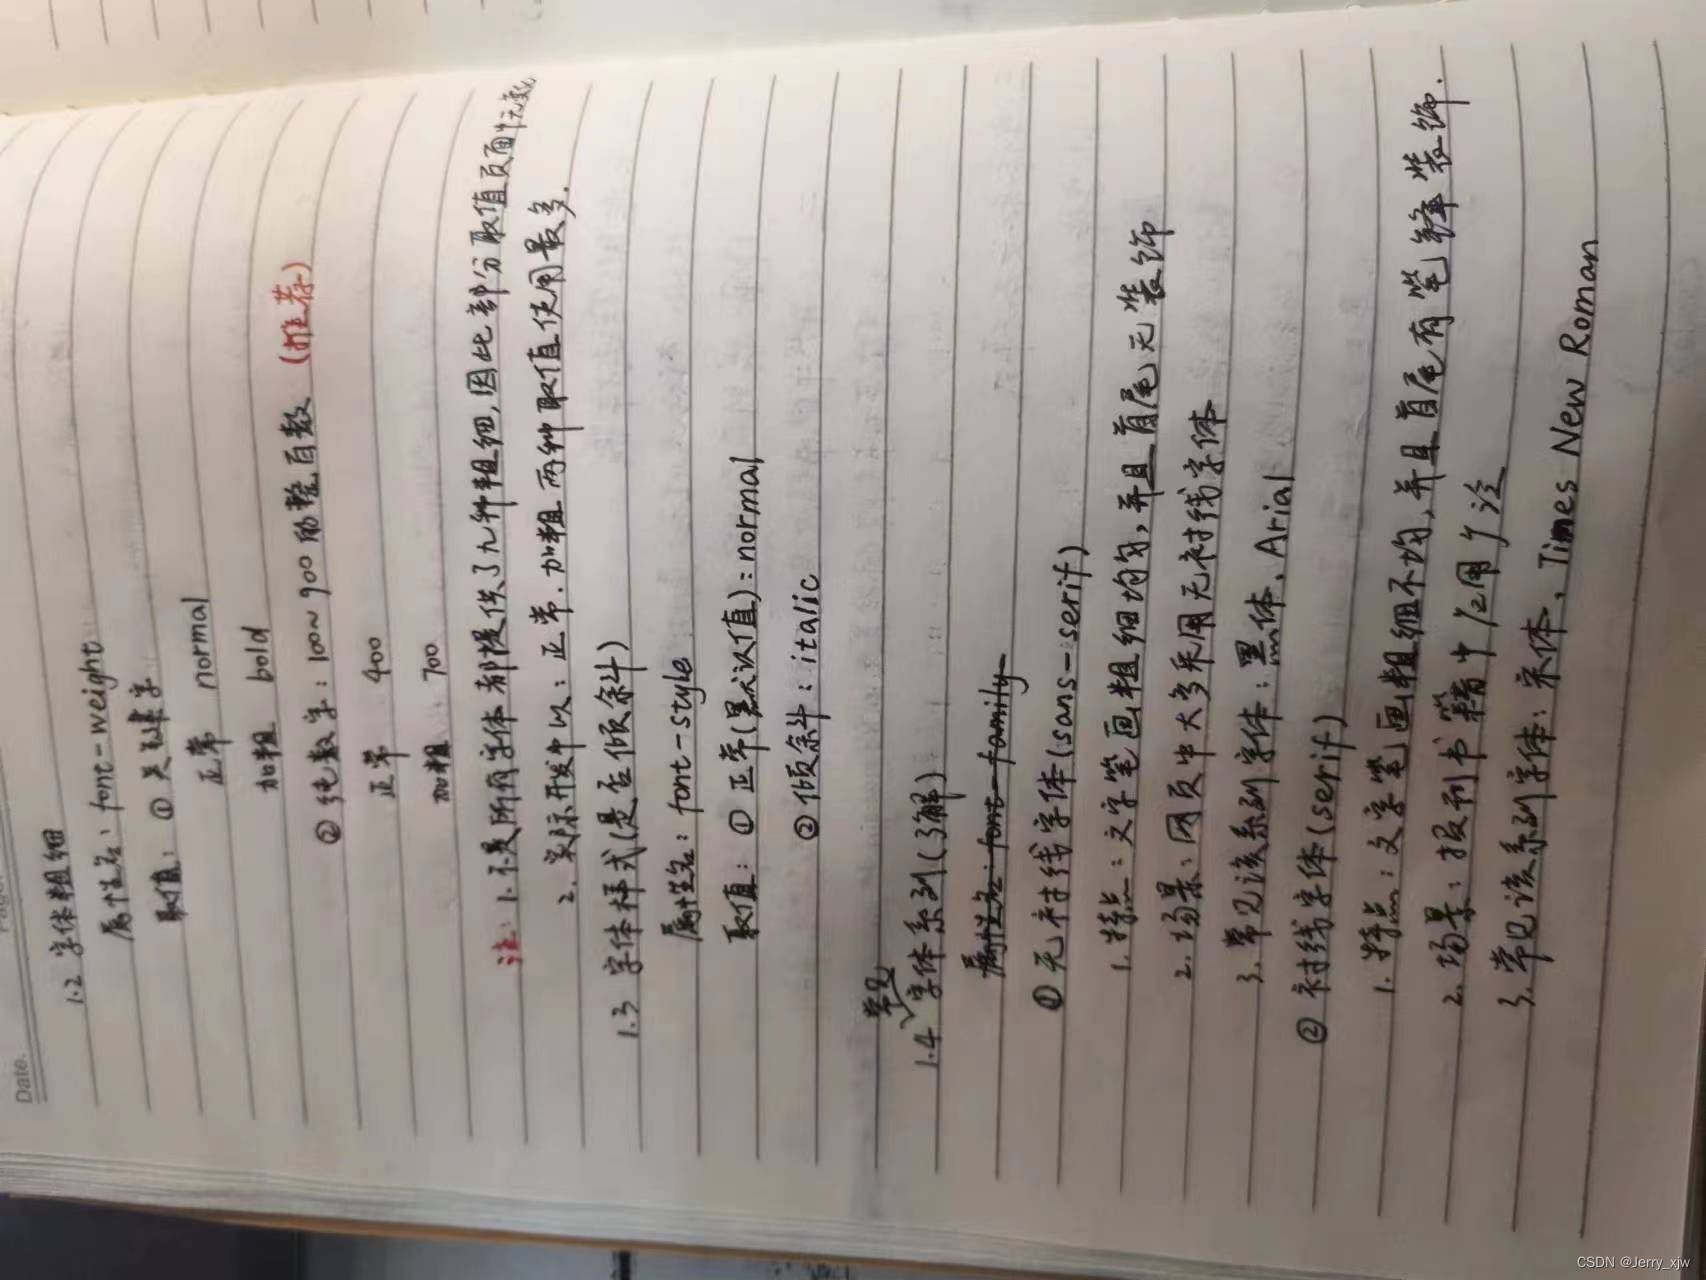 Date.
1.2 字体粗细
属性名：font-weight
取值：① 关键字
正常 normal
加粗 bold
② 纯数字：100~900的整百数（推荐）
正常 400
加粗 700
注：1.不是所有字体都提供了九种粗细,因此部分取值页面中无变化
2.实际开发中以：正常、加粗两种取值使用最多.
1.3 字体样式(是否倾斜)
属性名：font-style
取值：① 正常(默认值)：normal
② 倾斜：italic
常见
1.4 字体系列(了解)
属性名：font-family
① 无衬线字体(sans-serif)
1.特点：文字笔画粗细均匀,并且首尾无装饰
2.场景：网页中大多采用无衬线字体
3.常见该系列字体：黑体、Arial
② 衬线字体(serif)
1.特点：文字笔画粗细不均,并且首尾有笔锋装饰.
2.场景：报刊书籍中应用广泛
3.常见该系列字体：宋体、Times New Roman
CSDN @Jerry_xjw